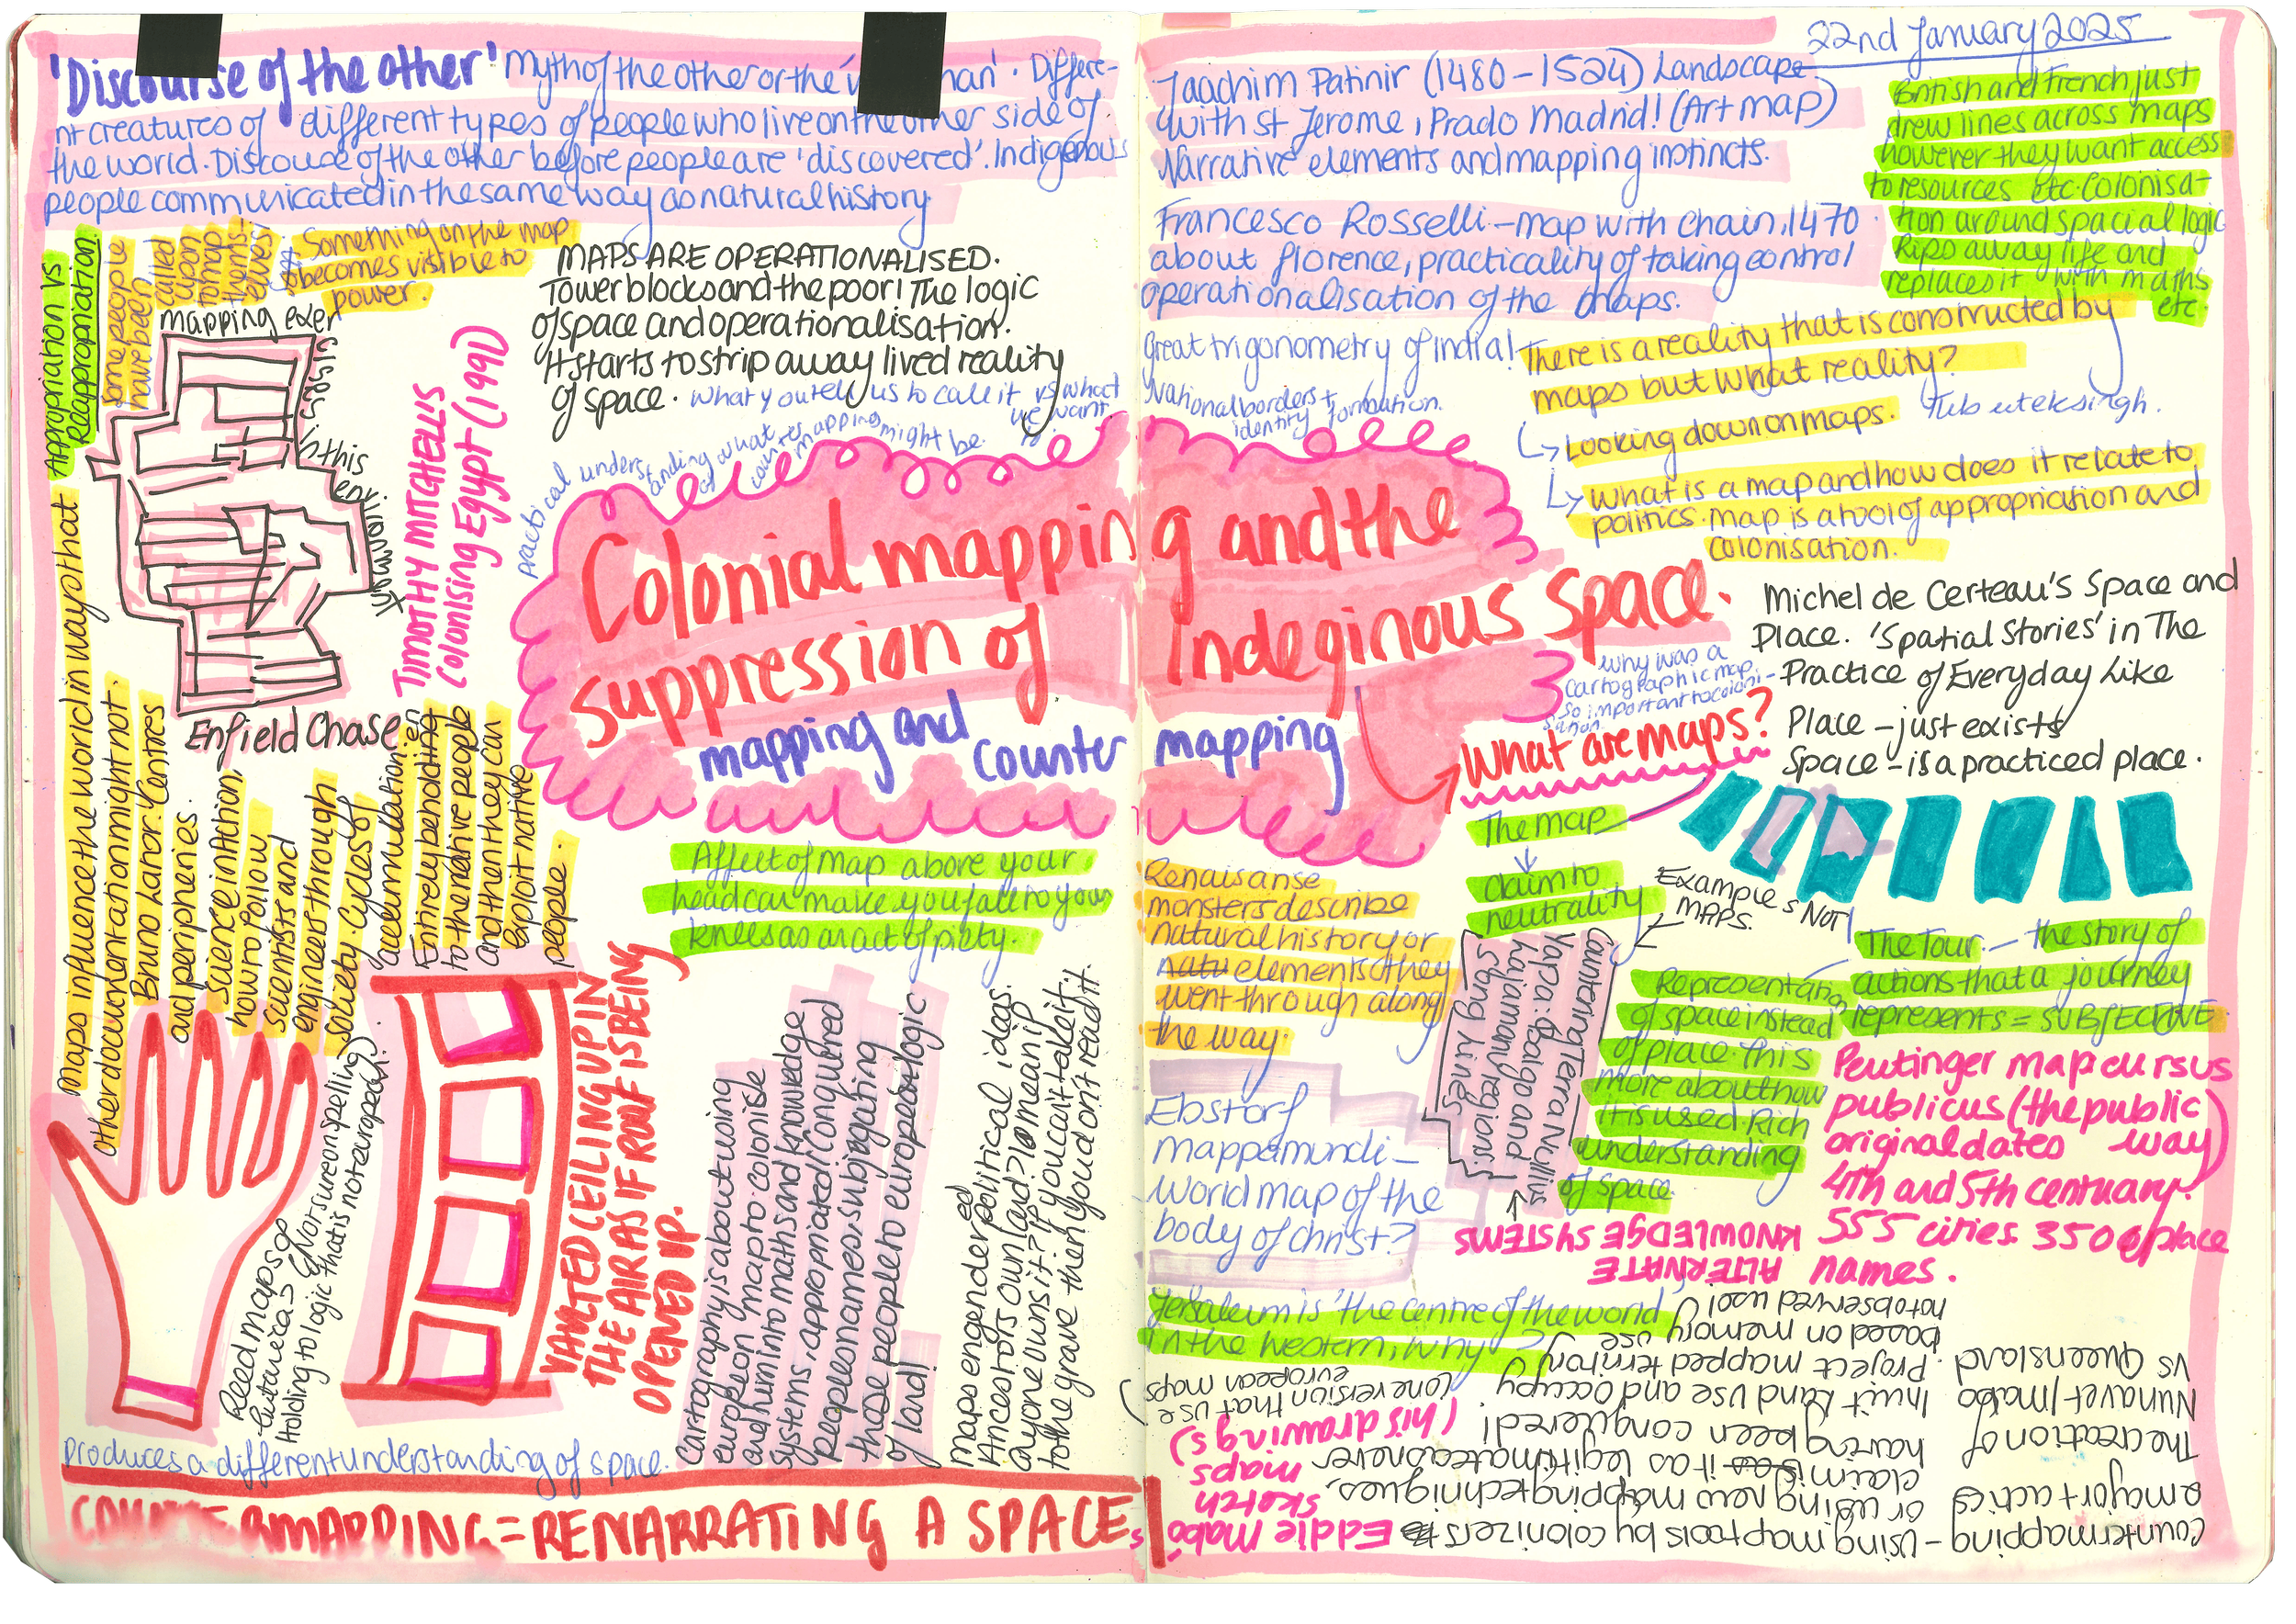 'Discourse of the other' Myth of the other or the 'w man'. Differe-
nt creatures of different types of people who live on the other side of
the world. Discouse of the other before people are 'discovered'. Indigenous
people communicated in the same way as natural history
Appropriation vs
Reappropriation.
some people
have been
called
upon
to map
thems-
elves!
Something on the map
becomes visible to
power.
mapping exer
cises in this
environment
Enfield Chase
TIMOTHY MITCHELL'S
Colonising Egypt (1991)
MAPS ARE OPERATIONALISED.
Tower blocks and the poor! The logic
of space and operationalisation.
It starts to strip away lived reality
of space. What you tell us to call it vs what
we want
practical understanding of what
counter mapping might be.
Colonial mapping and the
suppression of Indeginous Space.
mapping and counter mapping
Maps influence the world in way that
other documentation might not.
Bruno Lator: 'Centres
and peripheries.
Science in Action,
how to follow
scientists and
engineers through
society. Cycles of
accummulation:
Entirely beholding
en
to the native people
and then they can
exploit native
people.
Affect of map above your
head can make you fall to your
knees as an act of piety.
VAULTED CEILING UP IN
THE AIR AS IF ROOF IS BEING
OPENED UP.
Reed maps of
Eutueras (Not sure on spelling)
Holding to logic that is not european!
Cartography is about using
european map to colonise
and turn into maths and knowledge
systems, appropriated/conquered
people on names, subjugating
those people to european logic
of land!
maps engendered political ideas.
Ancestors own land? To mean ip
anyone owns it? If you can't take it
to the grave then you don't read it.
produces a different understanding of space.
COUNTERMAPPING = RENARRATING A SPACE
22nd January 2025
Jaachim Patinir (1480-1524) Landscape
with St Jerome, Prado Madrid! (Art map)
Narrative elements and mapping instincts.
Francesco Rosselli - map with chain, 1470
about florence, practicality of taking control
operationalisation of the maps.
British and French just
drew lines across maps
however they want access
to resources etc. Colonisa-
tion around spacial logic
Rips away life and
replaces it with maths
etc.
Great trigonometry of india!
National borders +
identity formation.
There is a reality that is constructed by
maps but what reality?
Looking down on maps.
What is a map and how does it relate to
politics. map is a tool of appropriation and
colonisation.
Michel de Certeau's Space and
Place. 'Spatial Stories' in The
Practice of Everyday Like
Place - just exists
Space - is a practiced place.
why was a
cartographic map
so important to coloni-
sation.
What are maps?
The map
claim to
neutrality
Examples NOT
MAPS.
The Tour - the story of
actions that a journey
represents = SUBJECTIVE
Representation
of space instead
of place. This
more about how
it is used. Rich
understanding
of space.
Renaisanse
monsters describe
natural history or
elements they
went through along
the way.
Countering Terra Nyllius
Yapa: Balgo and
hajamanu regions!
Song lines
ALTERNATE
KNOWLEDGE SYSTEMS
Ebstorf
mappamundi -
world map of the
body of christ?
Peutinger map cursus
publicus (the public
way)
original dates
4th and 5th centuary.
555 cities. 3500 place
names.
Jerseleum is 'the centre of the world'
in the western, why
(one version that use
european maps
Countermapping - using map tools by colonizers
a major tactics or using new mapping techniques,
claim it as legitimate as never
having been conquered!
The creation of
Nunavet/mabo
vs Queensland
Inuit Land Use and Occupy
Project mapped territory
based on memory use
not observed use!
Eddie Mabo's
sketch
maps
(his drawings)